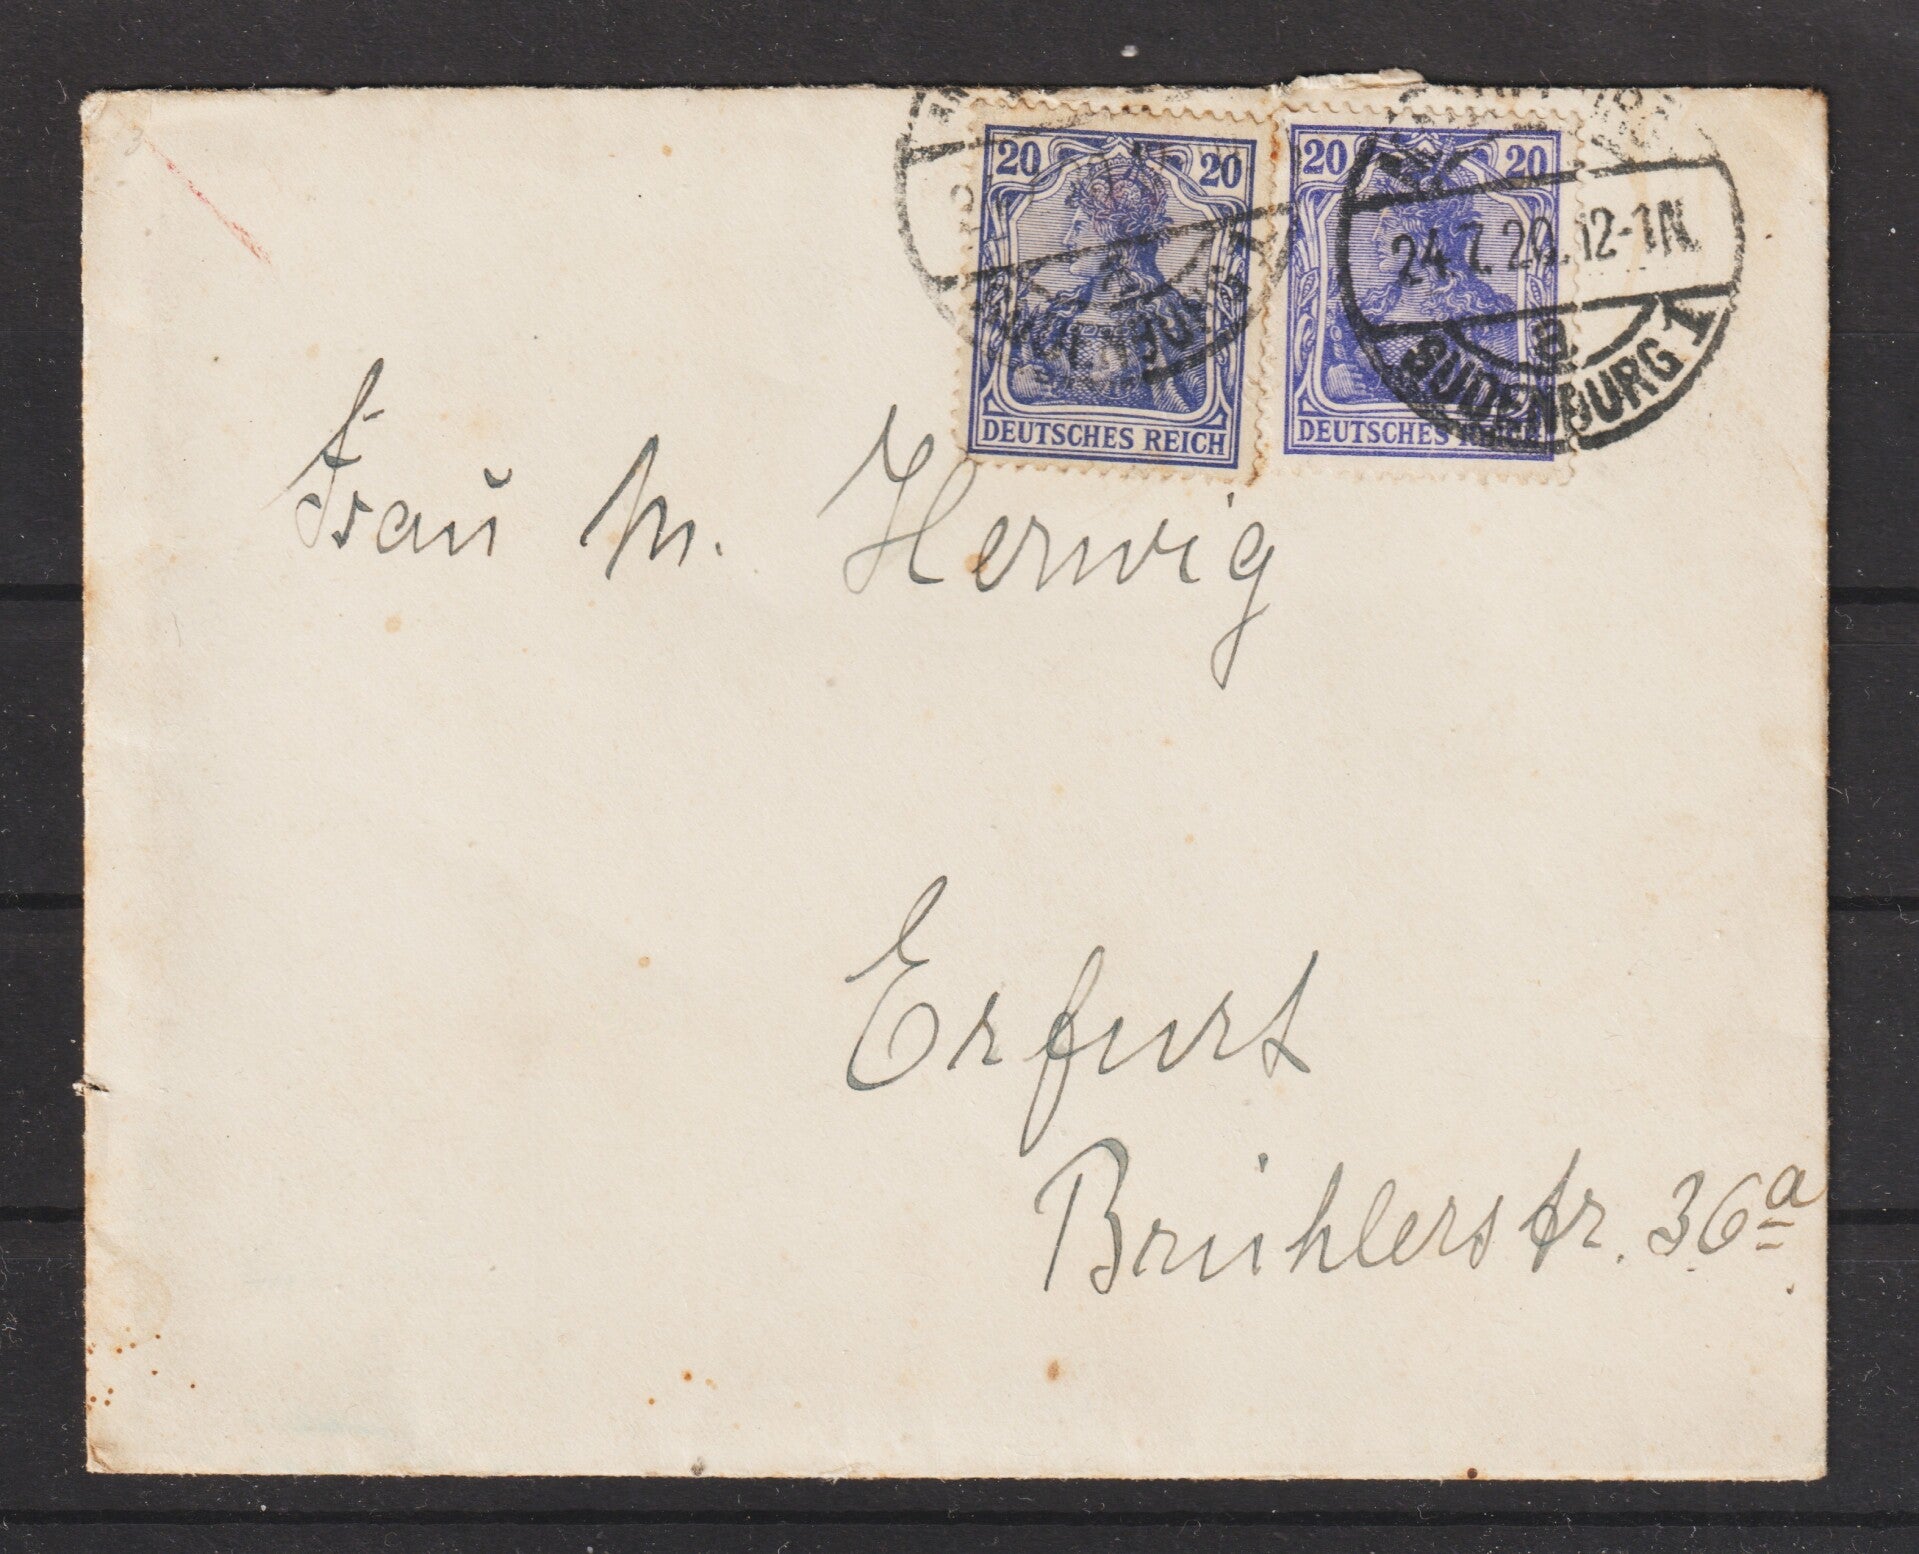 20 20
DEUTSCHES REICH
20 20
DEUTSCHES REICH
24.7.20.12-1N.
a
SUDENBURG 1
Frau M. Herwig
Erfurt
Brühlerstr. 36a